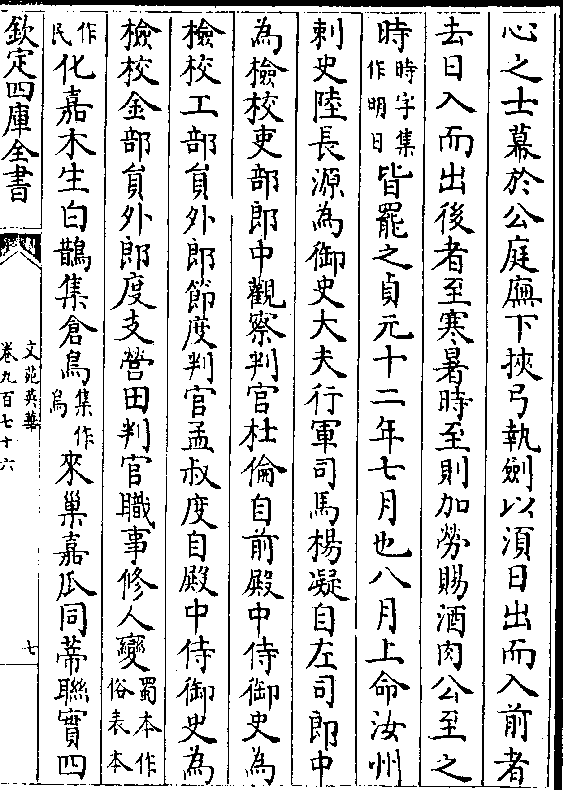 心之士幕於公庭廡下挾弓執劍以湏日出而入前者
去日入而出後者至寒暑時至則加勞賜酒肉公至之
時時字集作明日皆罷之貞元十二年七月也八月上命汝州
刺史陸長源為御史大夫行軍司馬楊凝自左司郎中
為檢校吏部郎中觀察判官杜倫自前殿中侍御史為
檢校工部貟外郎節度判官孟叔度自殿中侍御史為
檢校金部貟外郎度支營田判官職事修人變蜀本作俗表本
作民化嘉木生白鵲集倉烏集作烏來巢嘉瓜同蒂聯實四
欽定四庫全書
文苑英華
卷九百七十六
七